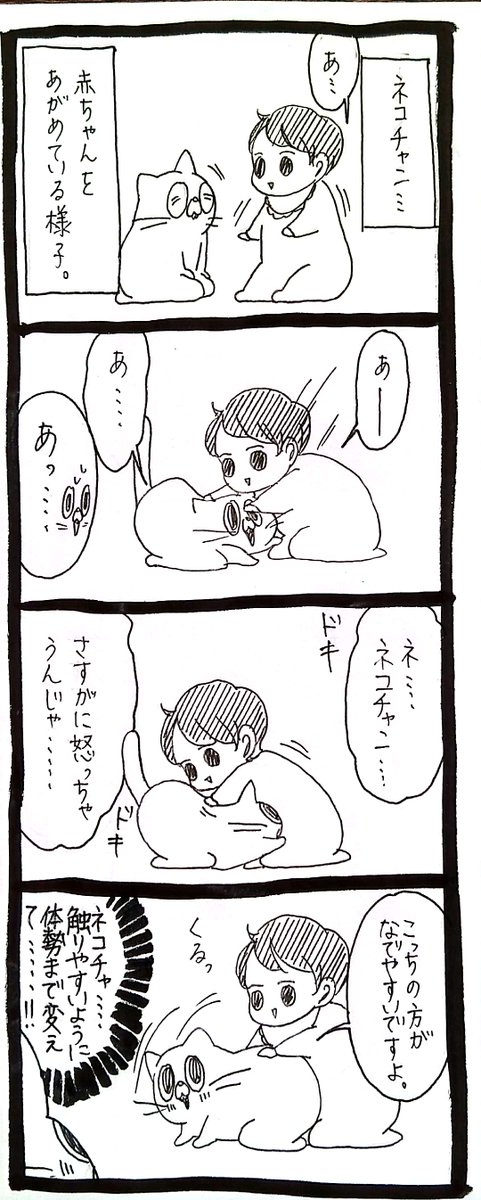 ネコチャン…
あ…
赤ちゃんを
あがめている様子。
あー
あ……
あっ……
ネ……
ネコチャン…
ドキ
さすがに怒っちゃ
うんじゃ……
ドキ
こっちの方が
なでやすいですよ。
くるっ
ネコチャ……
触りやすいように
体勢まで変え
て……!!